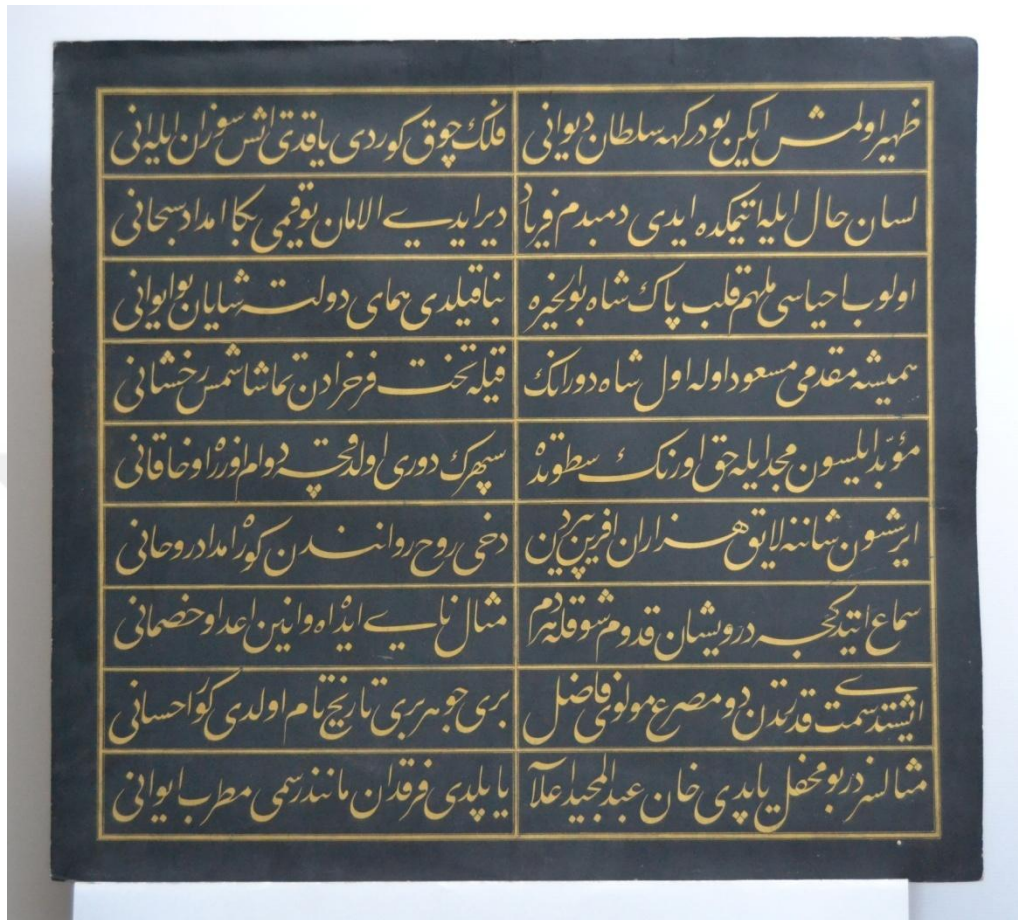 ظهیر اولمش ایکن بو درکهه سلطان دیوانی
فلك چوق كوردی یاقدی اتش سوزان ایله انی
لسان حال ایله اتیمكده ایدی دمبدم فریاد
دیر ایدی الامان یوقمی بكا امداد سبحانی
اولوب احیاسی ملهم قلب پاك شاه بو الخیره
بنا قیلدی همای دولته شایان بو ایوانی
همیشه مقدمی مسعود اوله اول شاه دورانك
قیله تخت فرحزادن تماشا شمس رخشانی
مؤبد ایلسون مجد ایله حق اورنك سطوتده
سپهرك دوری اولدقچه دوام اوزره او خاقانی
ایرشسون شاننه لایق هزاران افرین پیردن
دخی روح روانندن كوره امداد روحانی
سماع ایتدكجه درویشان قدوم شوقله هردم
مثال نای ایده اه و انین اعدا و خصمانی
ایشتدی سمت قدرتدن دو مصرع مولوی فاضل
بری جوهر بری تاریخ تام اولدی كور احسانی
مثالسزدر بو محفل یاپدی خان عبدالمجید اعلا
یاپلدی فرقدان مانند رسمی مطرب ایوانی